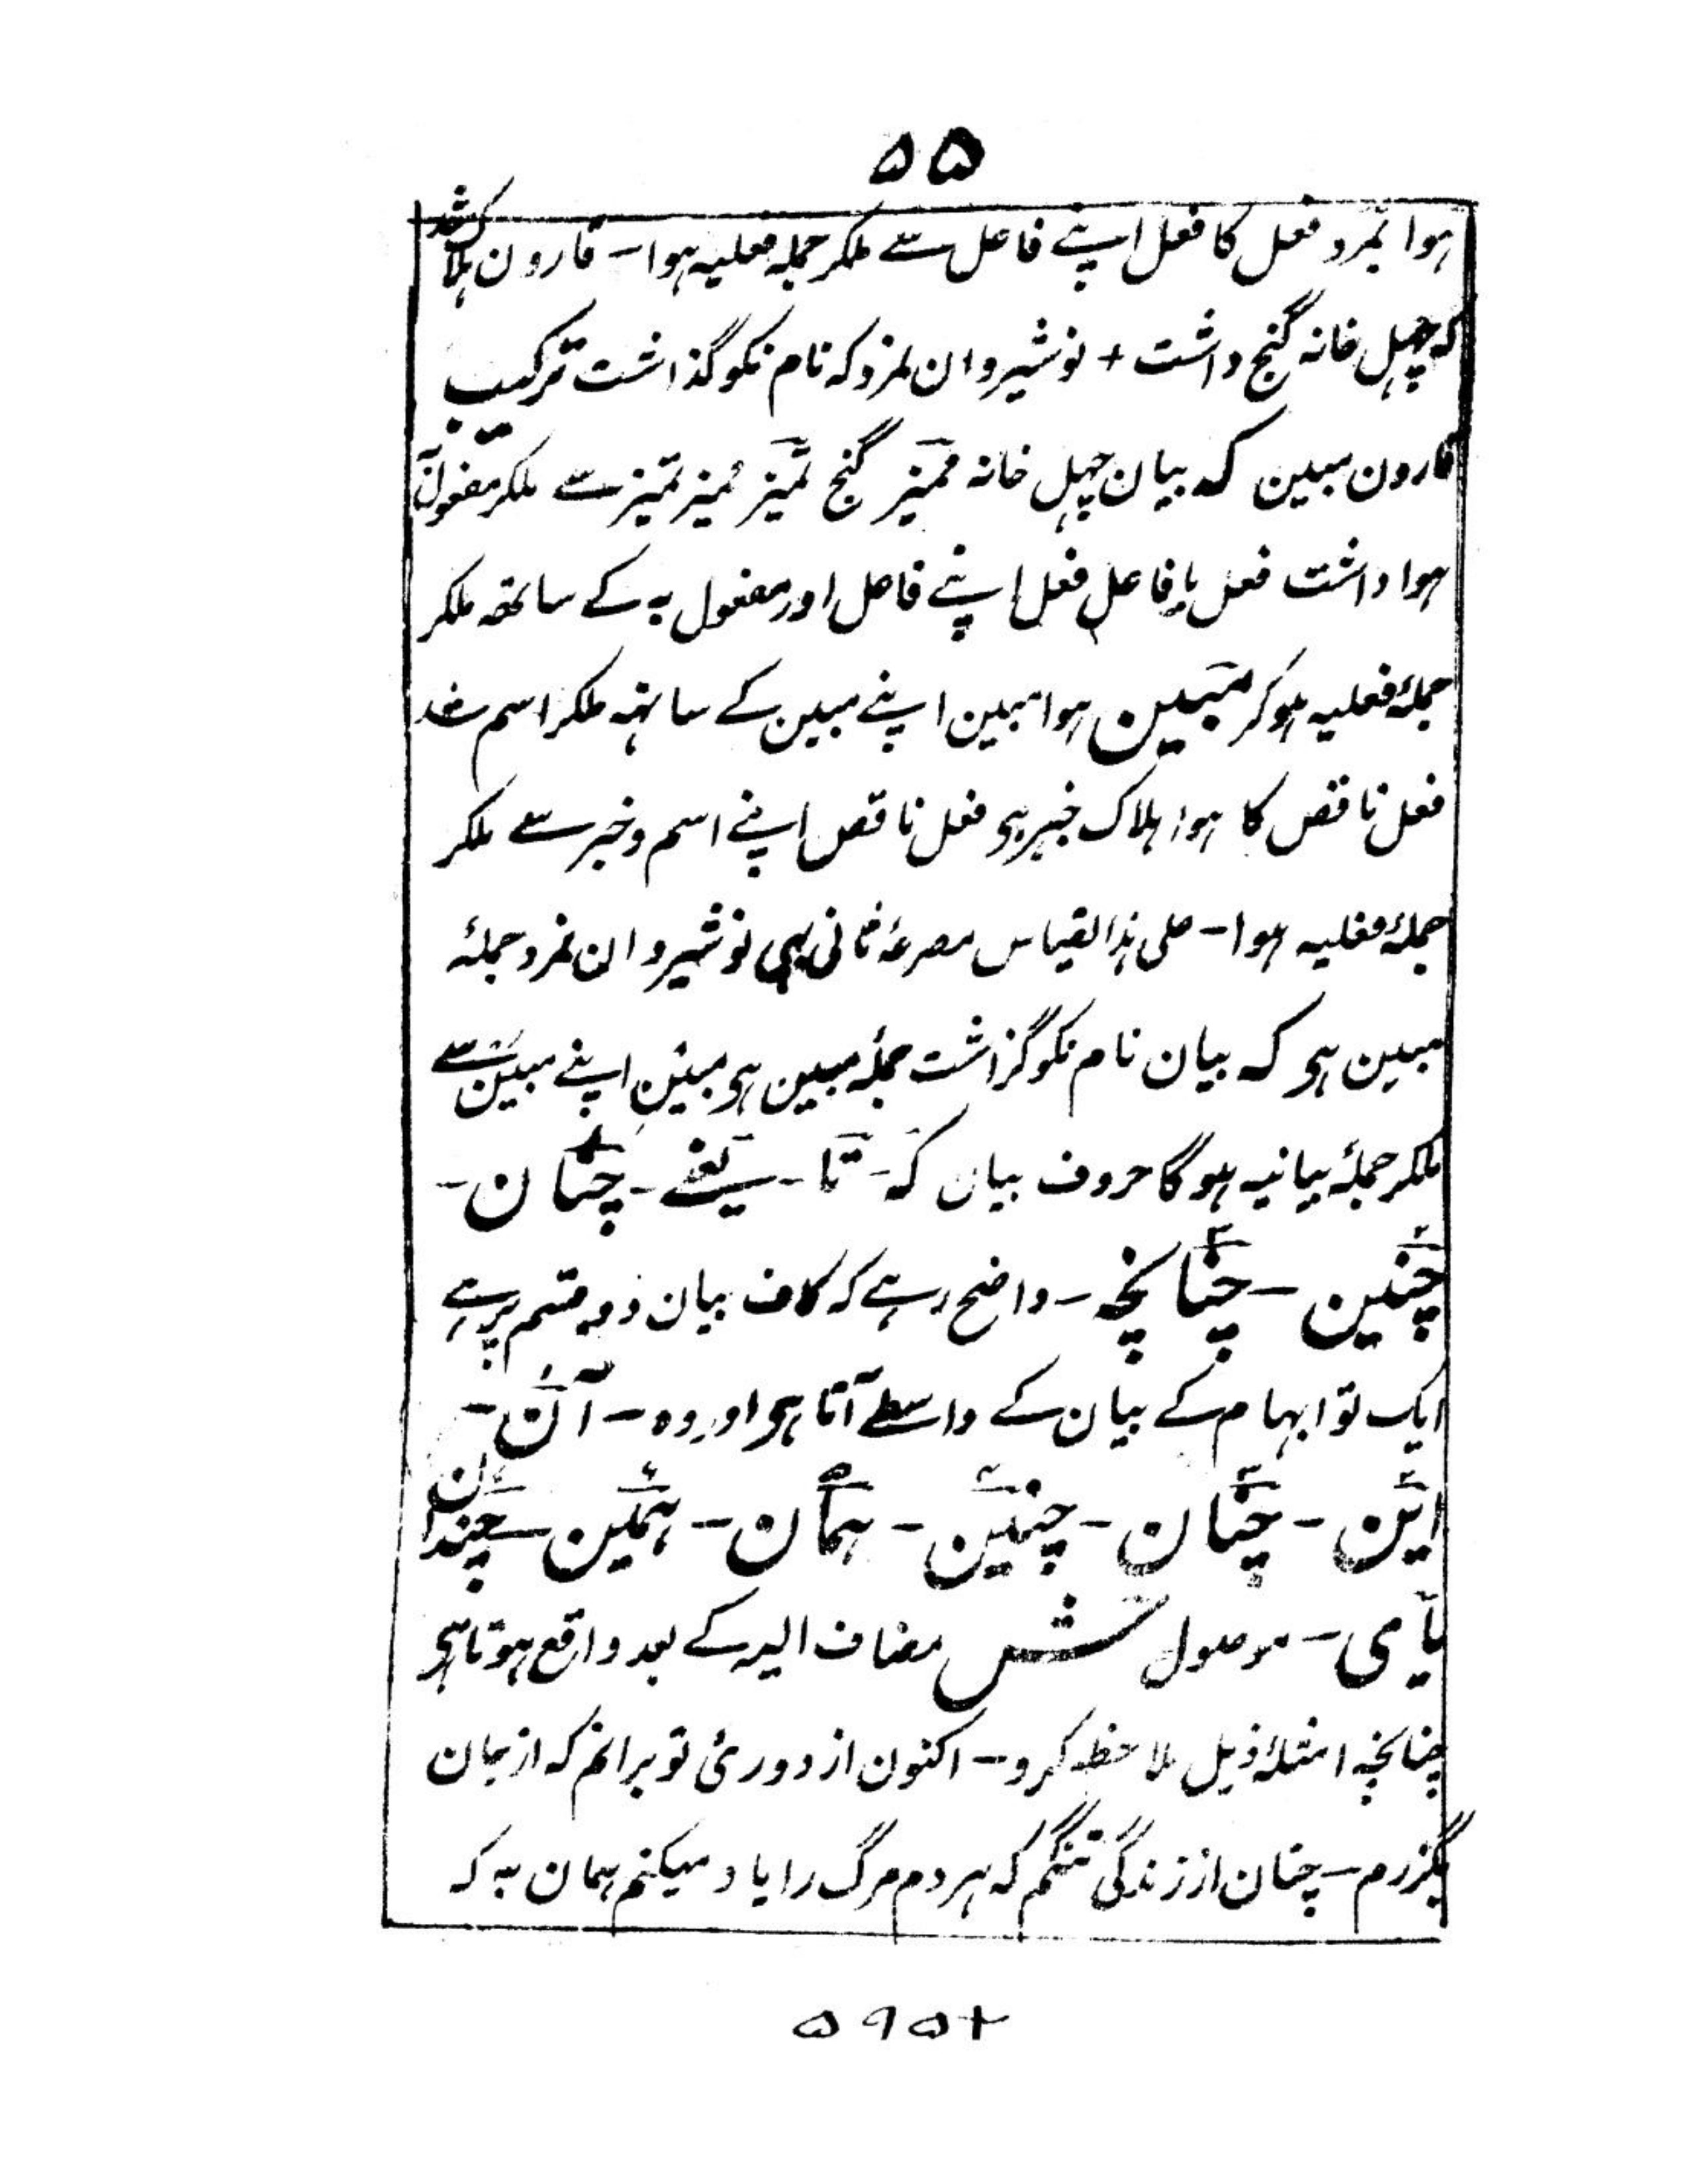 ۵۵
ہوا نمرد فعل کا فعل اپنے فاعل سے ملکر جملہ فعلیہ ہوا۔ قارون ہلاک شد
کہ چہل خانہ گنج داشت + نوشیروان نمرد کہ نام نکو گذاشت ترکیب
قارون مبین کہ بیان چہل خانہ ممیّز گنج تمیز ممیز تمیز سے ملکر مفعول بہ
ہوا داشت فعل با فاعل فعل اپنے فاعل اور مفعول بہ کے ساتھ ملکر
جملۂ فعلیہ ہوکر مبیّن ہوا مبین اپنے مبین کے ساتھ ملکر اسم شد
فعل ناقص کا ہوا ہلاک خبر ہی فعل ناقص اپنے اسم و خبر سے ملکر
جملۂ فعلیہ ہوا۔ علی ہذا القیاس مصرعۂ ثانی ہی نوشیروان نمرد جملۂ
مبین ہی کہ بیان نام نکو گزاشت جملۂ مبین ہی مبین اپنے مبین سے
ملکر جملۂ بیانیہ ہوگا حروف بیان کہ۔ تا۔ یعنے۔ چنان۔
چنین۔ چنانچہ۔ واضح رہے کہ کاف بیان دو قسم پر ہے
ایک تو ابہام کے بیان کے واسطے آتا ہی اور وہ۔ آن۔
این۔ چنان۔ چنین۔ ہمان۔ ہمین۔ چندان
یای۔ موصول ش مضاف الیہ کے بعد واقع ہوتا ہی
چنانچہ امثلۂ ذیل ملاحظہ کرو۔ اکنون از دوریٔ تو برانم کہ از جان
بگزرم۔ چنان از زندگی تنگم کہ ہر دم مرگ را یاد میکنم ہمان بہ کہ
۵۹۵+